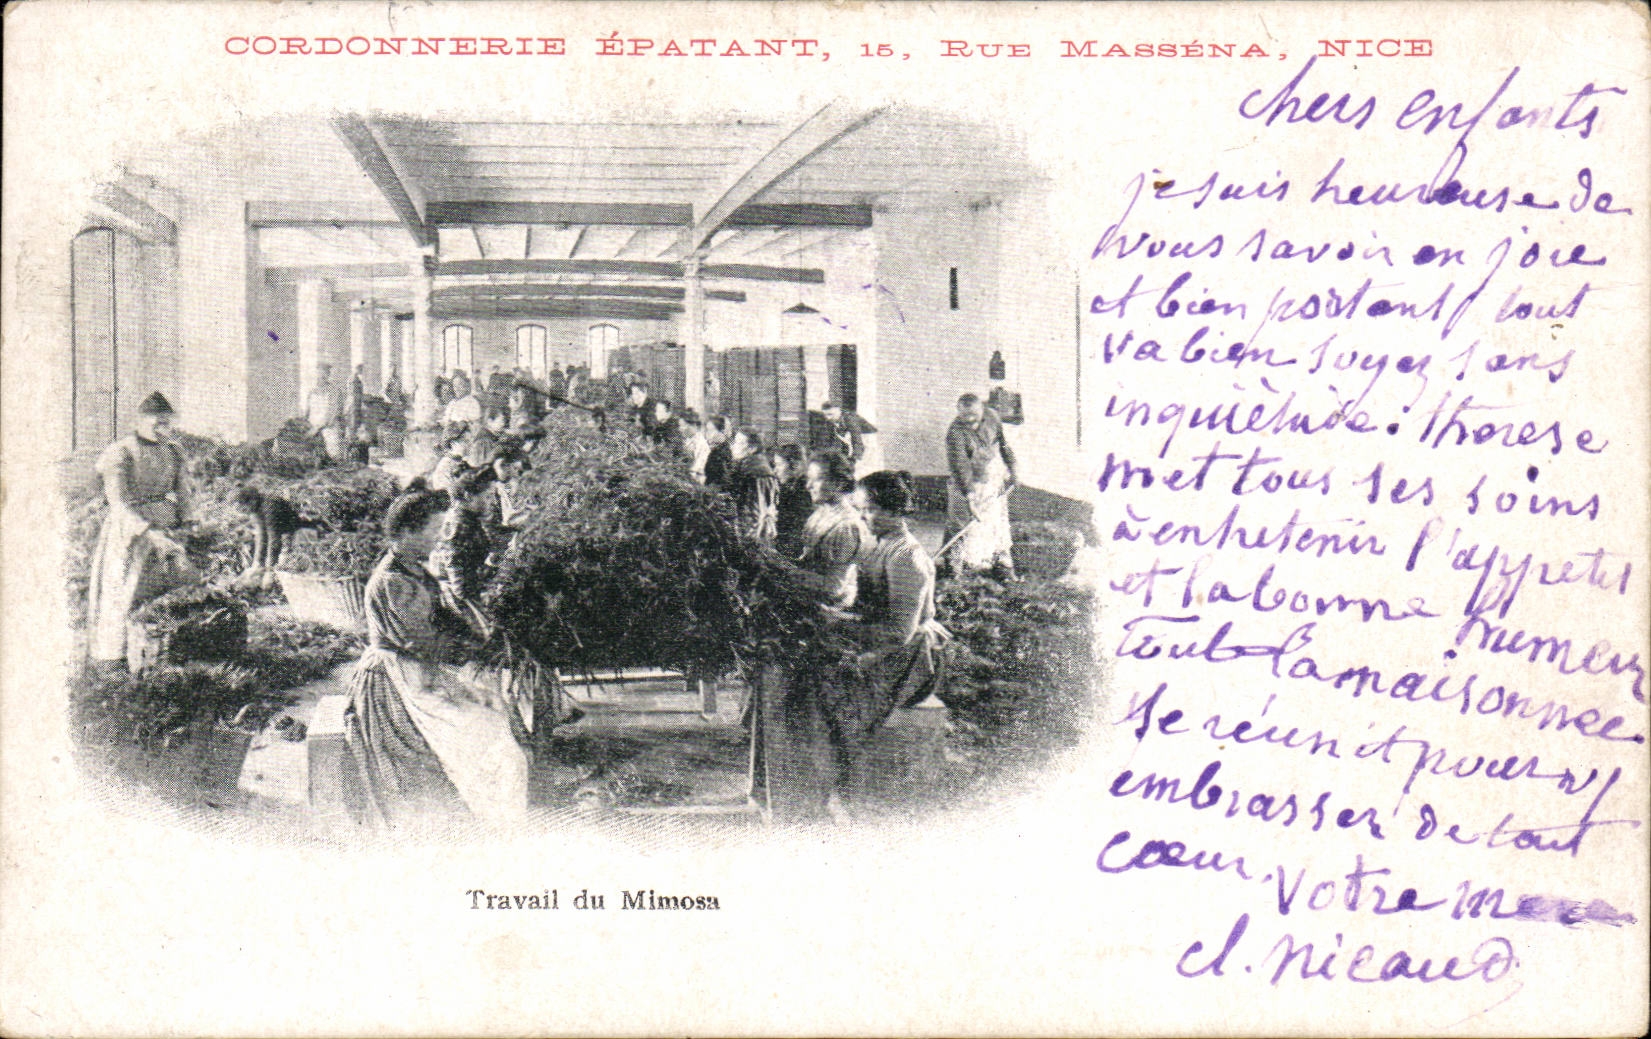 CORDONNERIE ÉPATANT, 15, RUE MASSÉNA, NICE
chers enfants
je suis heureuse de
vous savoir en joie
et bien portant, tout
va bien soyez sans
inquiètude. therese
met tous ses soins
à entretenir l'appetit
et la bonne humeur
toute la maisonnee
se réunit pour v/
embrasser de tout
cœur. Votre mere
cl. Nicaud
Travail du Mimosa